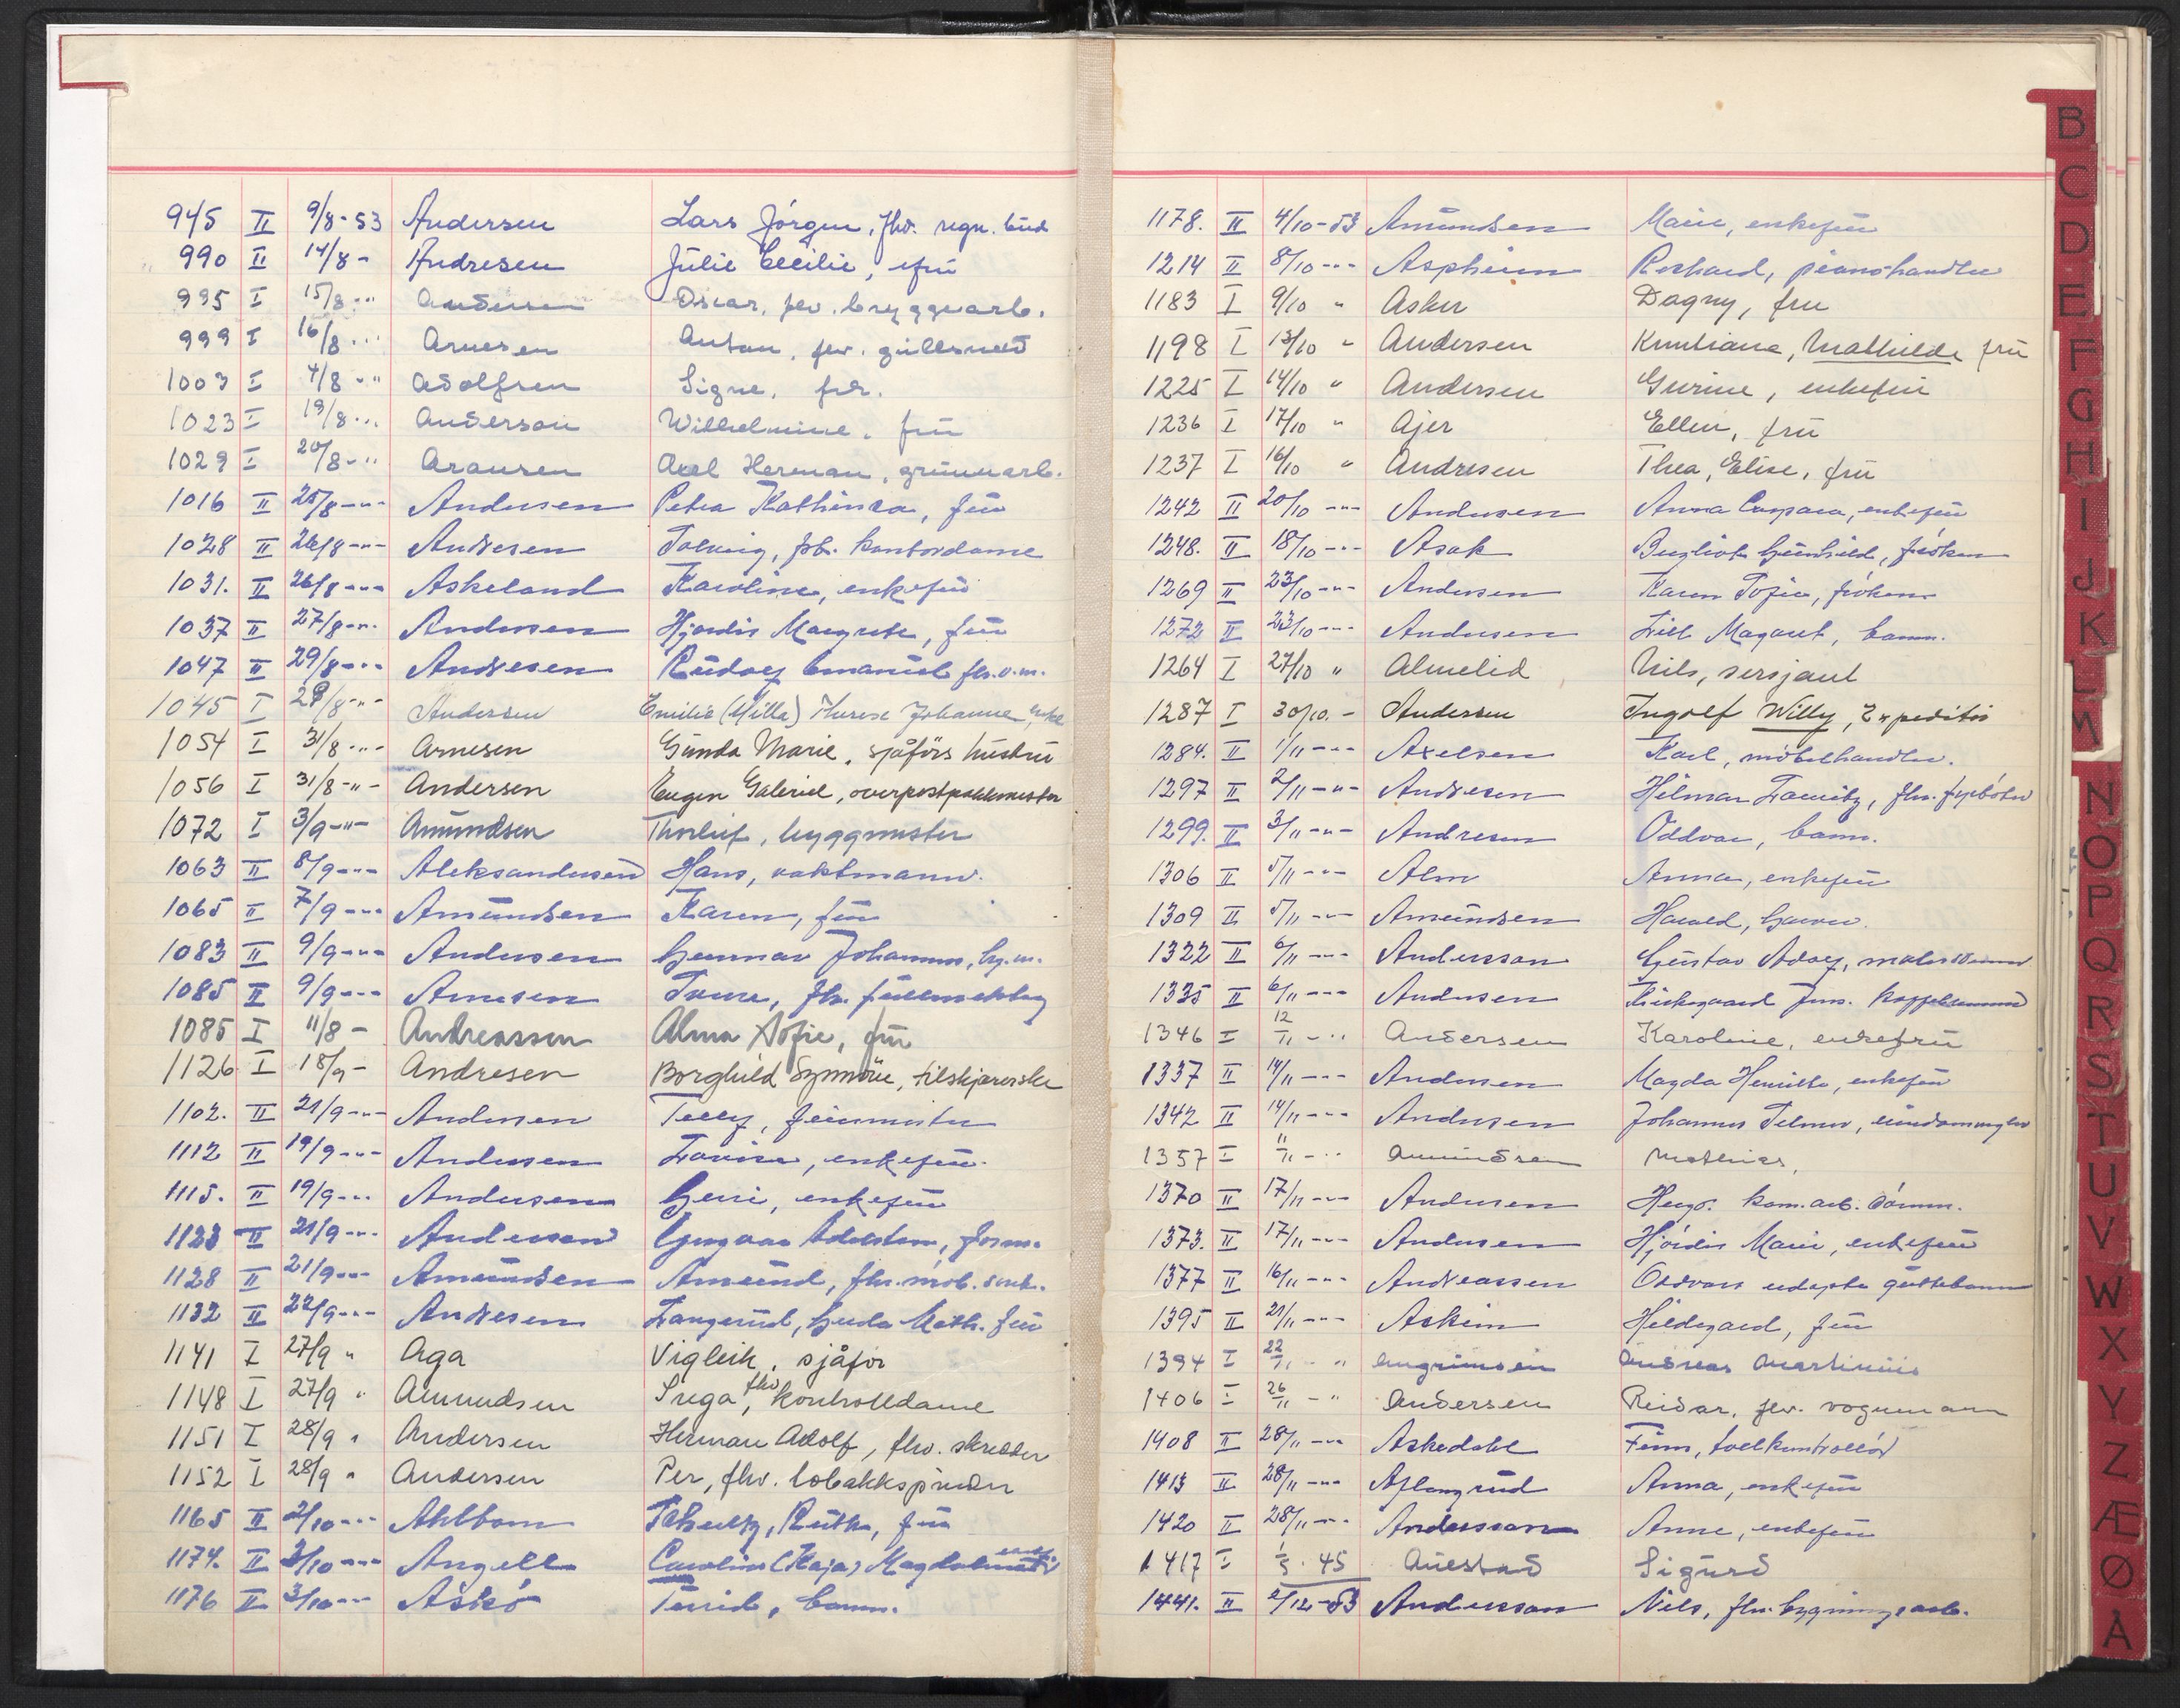 945 II 9/8-53 Andersen Lars Jörgen, fhv. regn. bud
990 II 14/8 - Andresen Julie Cecilie, efru
995 I 15/8 -"- Andersen Oscar, fev. bryggearb.
999 I 16/8 -"- Arnesen Anton, fev. gullsmed
1003 I 4/8 -"- Adolfsen Signe, frk.
1023 I 19/8 -"- Anderson Wilhelmine, fru
1029 I 20/8 -"- Aronsen Axel Herman, grünnarb.
1016 II 25/8 -"- Andersen Petra Kathinca, fru
1028 II 26/8 -"- Andresen Solveig, fhv. kontordame
1031. II 26/8 -"- Askeland Karoline, enkefru
1037 II 27/8 -"- Andersen Hjördis Margrete, fru
1047 II 29/8 -"- Andresen Rudolf Emanuel fhv. v.m.
1045 I 29/8 -"- Andersen Emilie (Milla) Therese Johanne enke
1054 I 31/8 -"- Arnesen Gunda Marie, sjåførs hustru
1056 I 31/8 -"- Andersen Eugen Gabriel, overpostpakkmester
1072 I 3/9 -"- Amundsen Thorleif, byggmester
1063 II 8/9 -"- Aleksandersen Hans, vaktmann.
1065 II 7/9 -"- Amundsen Karen, fru
1083 II 9/9 -"- Andersen Gunnar Johannes, bg.m.
1085 II 9/9 -"- Arnesen fhv. fullmektig
1085 I 11/8 - Andreassen Alma Sofie, fru
1126 I 18/9 - Andresen Borghild Synnöve, tilskjærerske
1102. II 21/9 -"- Andersen feiermester
1112 II 19/9 -"- Andersen Lovise, enkefru
1115. II 19/9 -"- Andersen Guri, enkefru
1123 II 21/9 -"- Anderssen Adelsten, form.
1128 II 21/9 -"- Amundsen Amund, fhv. möb. snek.
1132 II 22/9 -"- Andresen Langerud, Gerda Math. fru
1141 I 27/9 " Aga Vigleik, sjåfør
1148 I 27/9 " Amundsen Inga, fhv kontrolldame
1151 I 28/9 " Andersen Herman Adolf, fhv. skredder
1152 I 28/9 " Andersen Per, fhv. tobakkspinder
1165 II 2/10 -"- Ahlbom Schultz, Ruth, fru
1174. II 3/10 -"- Angell Caroline (Kaja) Magdalene enkefr
1176 II 3/10 -"- Askö Turid, barn.
1178. II 4/10-53 Amundsen Marie, enkefru
1214 II 8/10 -"- Aspheim Richard, pianohandler
1183 I 9/10 " Asker Dagny, fru
1198 I 13/10 " Andersen Kristiane, Mathilde fru
1225 I 14/10 " Andersen Gurine, enkefru
1236 I 17/10 " Ajer Ellen, fru
1237 I 16/10 " Andresen Thea, Elise, fru
1242 II 20/10 -"- Andersen Anna Caspara, enkefru
1248. II 18/10 -"- Asak Bergliot Gunhild, fröken
1269 II 23/10 -"- Andersen Karen Sofie, fröken
1272 II 23/10 -"- Andersen Liell Magaret, barn.
1264 I 27/10 " Almelid Nils, sersjant
1287 I 30/10. - Andersen Ingolf Willy, Expeditör
1284. II 1/11 -"- Axelsen Karl, möbelhandler.
1297 II 2/11 -"- Andresen Hilmar Lauritz, fhv. fyrböter
1299. II 3/11 -"- Andresen Oddvar, barn.
1306 II 5/11 -"- Alm Anna, enkefru
1309 II 5/11 -"- Amundsen Harald, garver.
1322 II 6/11 -"- Andersson Gustav Adolf, malersvenn
1335 II 6/11 -"- Andersen Kirkegaard Jens.
1346 I 12/11 -"- Andersen Karoline, enkefru
1337 II 14/11 -"- Andersen Magda Henritte, enkefru
1342 II 14/11 -"- Andersen Johannes Selmer, eiendomsmegler
1357 I 11/11 -"- Amundsen Mathias,
1370 II 17/11 -"- Andersen Hugo. kom. arb. tömm.
1373. II 17/11 -"- Andersen Hjördis Marie, enkefru
1377 II 16/11 -"- Andreassen Oddvars udøpte guttebarn
1395 II 21/11 -"- Askim Hildegard, fru
1394 I 22/11 - " Angrimsen Andreas Martinius
1406 I 26/11 - " Andersen Reidar, fev. vognmann
1408 II 28/11 -"- Askedahl Finn, tollkontrollör
1413 II 28/11 -"- Aflangrud Anna, enkefru
1420 II 28/11 -"- Andersson Anne, enkefru
1417 I 1/5 . 45 Auestad Sigurd
1441. II 2/12-53 Andersson Nils, fhv. bygningsarb.
B
C
D
E
F
G
H
I
J
K
L
M
N
O
P
Q
R
S
T
U
V
W
X
Y
Z
Æ
Ø
Å